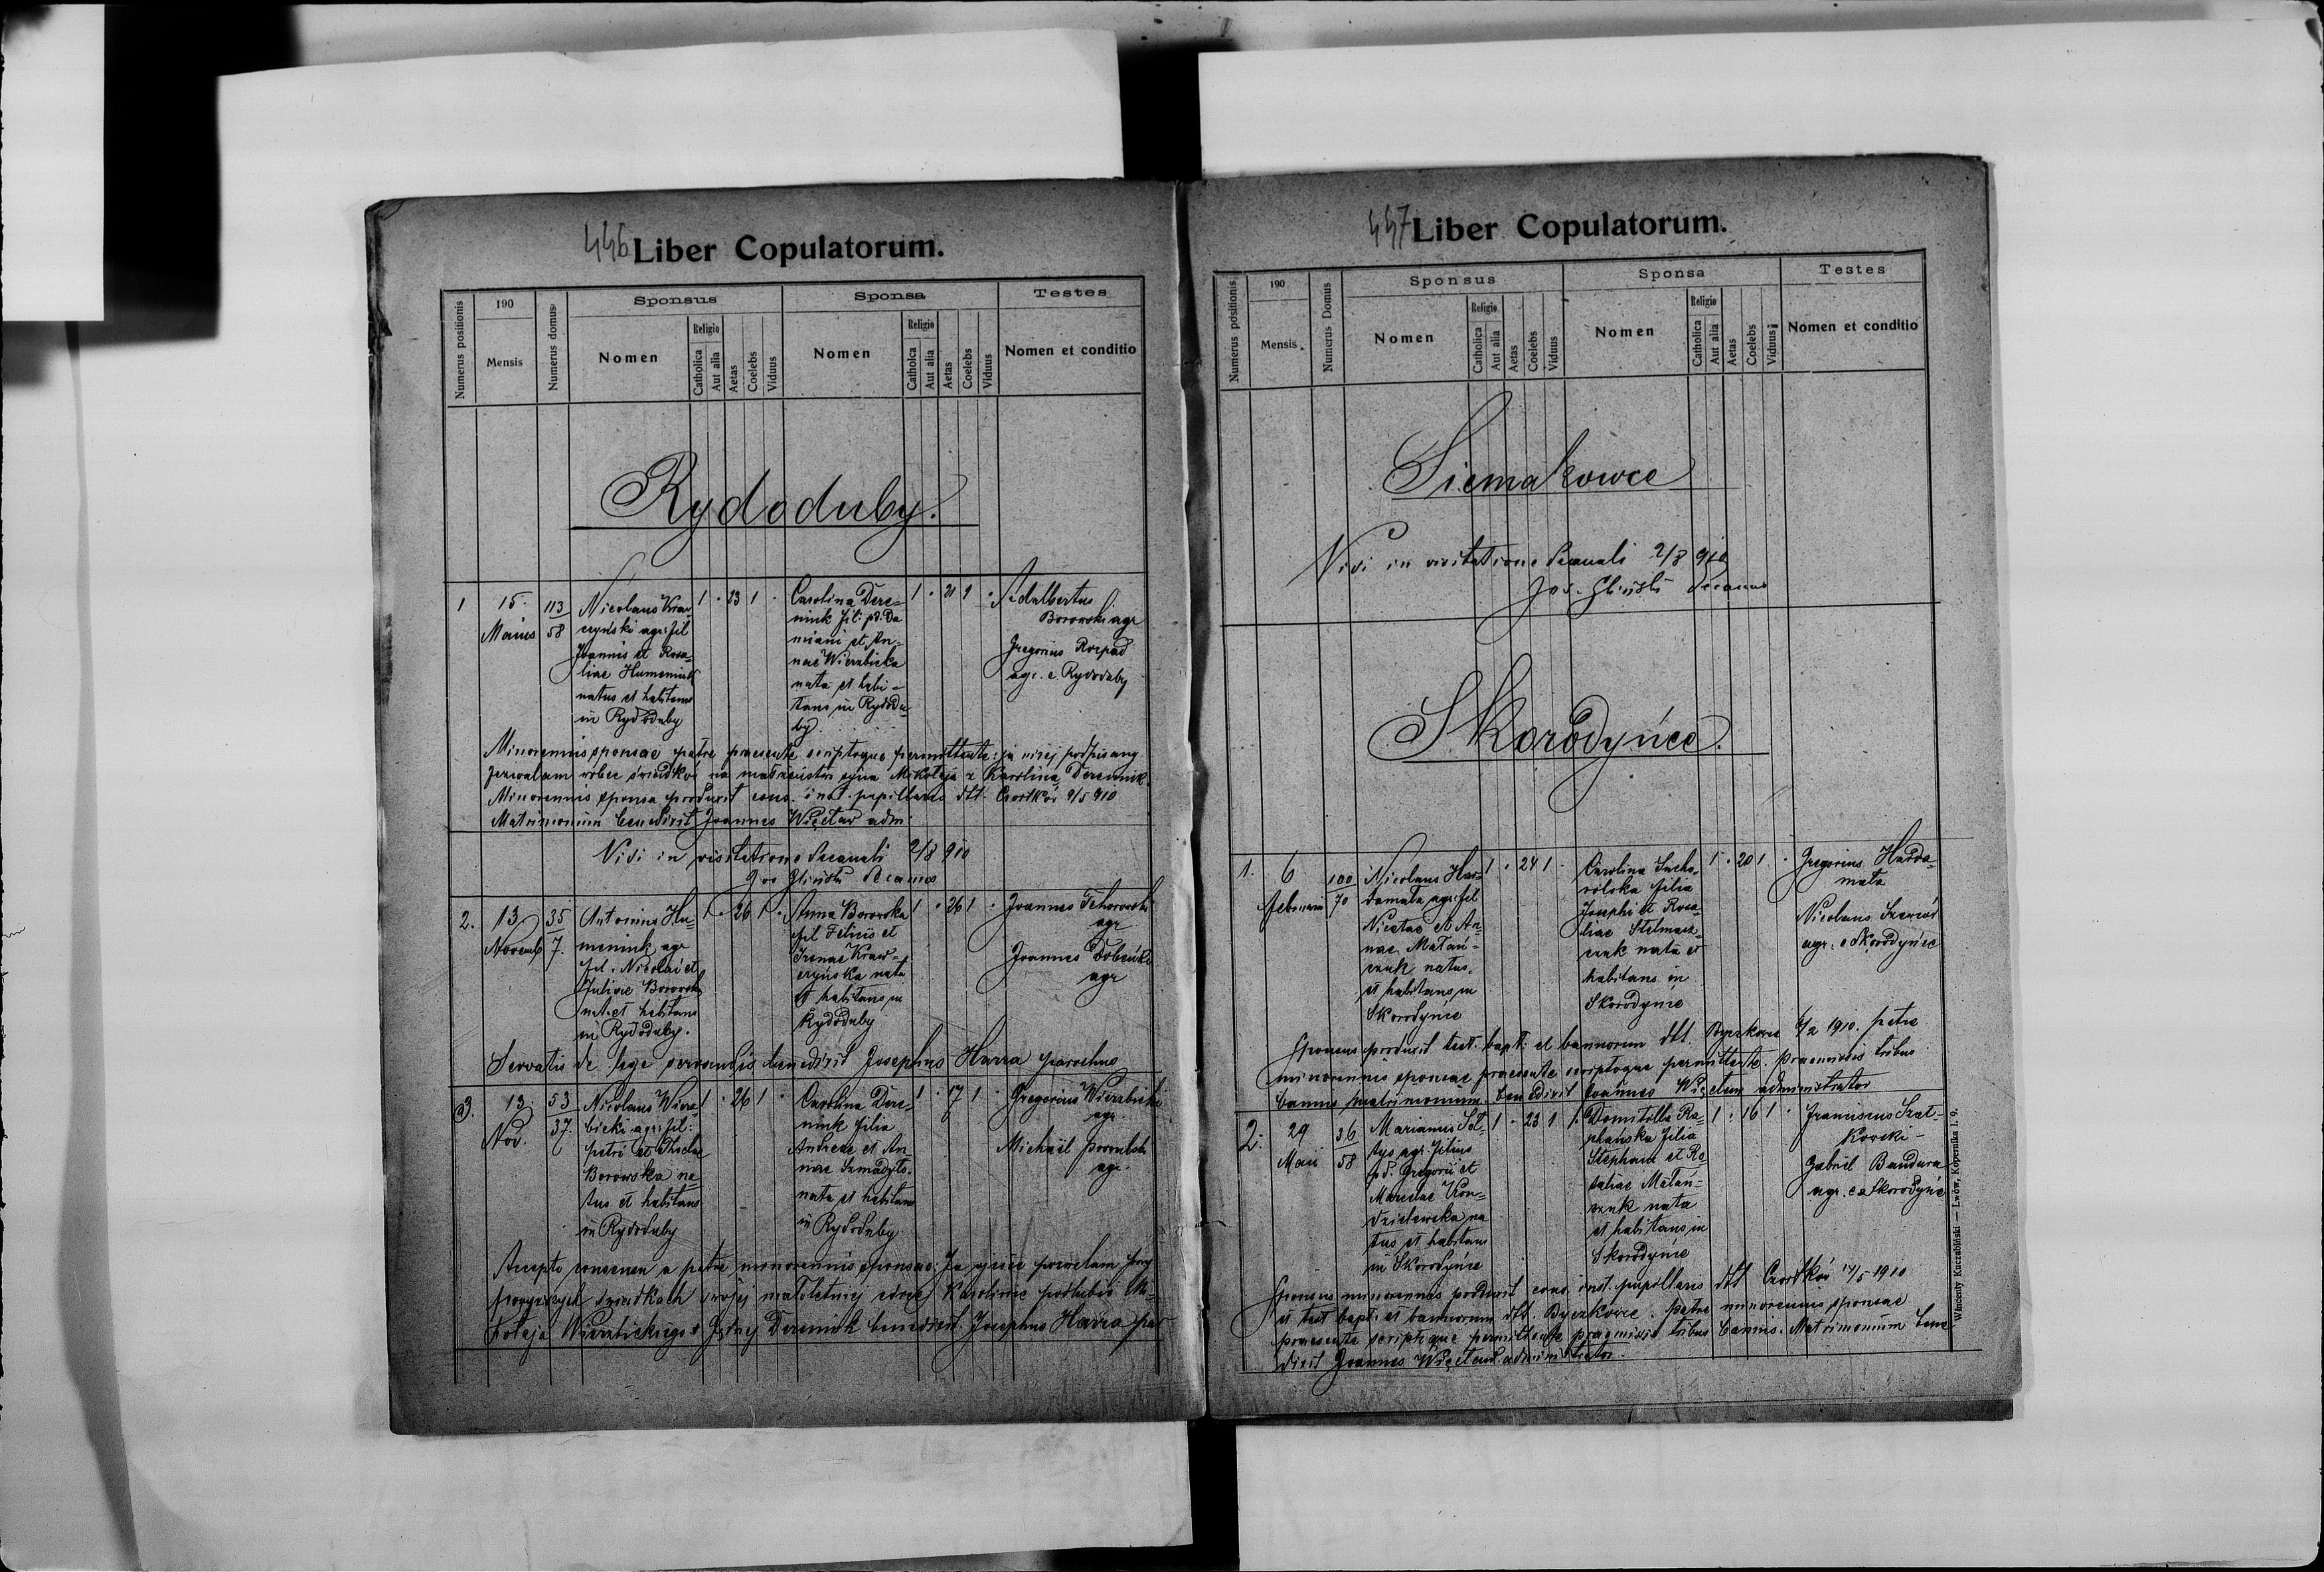 446 Liber Copulatorum.
Numerus positionis
190
Mensis
Numerus domus
Sponsus
Nomen
Religio
Catholica
Aut alia
Aetas
Coelebs
Viduus
Sponsa
Nomen
Religio
Catholica
Aut alia
Aetas
Coelebs
Viduus
Testes
Nomen et conditio
Rydoduby.
1
15.
Maius
113
58
Nicolaus Kraw
czyński agr. fil
Joannis et Rosa-
liae Humeniuk
natus et habitans
in Rydoduby
1 . 23 1 .
Carolina Dere-
niuk fil. pd. Da
miani et An-
nae Wierzbicka
nata et habi-
tans in Rydodu
by.
1 . 21 1 .
Adalbertus
Borowski agr
Gregorius
agr. e Rydoduby
Minorennis sponsae patre praesente scriptoque permittente: ja niżej podpisany
zezwalam wobec świadków na małżeństwo syna Mikołaja z Karoliną Dereniuk.
Minorennis sponsa produxit cons. inst. pupillaris dtt. Czortków 9/5 910
Matrimonium benedixit Joannes Więcław adm.
Vidi in visitatione decanali 2/8 910
Jos Gliński decanus
2.
13
Novemb
35
7.
Antonius Hu-
meniuk agr
fil. Nicolai et
Juliae Borowska
nat. et habitans
in Rydoduby.
1 . 26 1 .
Anna Borowska
fil Felicis et
Irenae Kraw-
czyńska nata
et habitans in
Rydoduby
1 . 26 1 .
Joannes
agr
Joannes
agr
Servatis de lege servandis benedixit Josephus Harra parochus
3.
13.
Nov.
53
37.
Nicolaus Wierz-
bicki agr. fil:
Petri et Theclae
Borowska na-
tus et habitans
in Rydoduby
1 . 26 1 .
Carolina Dere-
niuk filia
Andreae et An-
nae
nata et habitans
in Rydoduby
1 . 17 1 .
Gregorius Wierzbicki
agr.
Michaël
agr.
Accepto consensu a patre minorennis sponsae: Ja ojciec pozwalam przy
powyższych świadkach swojej małoletniej córce Karolinie poślubić Mi-
kołaja Wierzbickiego Dereniuk benedixit Josephus Harra par
447 Liber Copulatorum.
Numerus positionis
190
Mensis
Numerus Domus
Sponsus
Nomen
Religio
Catholica
Aut alia
Aetas
Coelebs
Viduus
Sponsa
Nomen
Religio
Catholica
Aut alia
Aetas
Coelebs
Viduus
Testes
Nomen et conditio
Siemakowce
Vidi in visitatione decanali 2/8 910
Jos. Gliński decanus
Skorodyńce.
1.
6
februarii
100
70
Nicolaus Har-
damata agr. fil
Nicetae et An-
nae Matań-
czuk natus
et habitans in
Skorodyńce
1 . 24 1 .
Carolina Sucho-
wilska filia
Josephi et Rosa-
liae Stelmasz-
czuk nata et
habitans in
Skorodyńce
1 . 20 1 .
Gregorius Harda-
mata
Nicolaus
agr. e Skorodyńce
Sponsus produxit test. bapt. et bannorum dtt. Byczkowce 6/2 1910. Patre
minorennis sponsae praesente scriptoque permittente. Praemissis tribus
bannis matrimonium benedixit Joannes Więcław administrator
2.
29
Maii
36
58
Marianus Soł-
tys agr. filius
pd Gregorii et
Mariae Kon-
dzielewska na
tus et habitans
in Skorodyńce
1 . 23 1 .
Domitilla Ra-
phańska filia
Stephani et Ro-
saliae Matań-
czuk nata
et habitans in
Skorodyńce
1 . 16 1 .
Franciscus Szat-
kowski
Gabriel Bandura
agr. e Skorodyńce
Sponsus minorennis produxit cons. inst. pupillaris dtt Czortków 14/5 1910
et test bapt. et bannorum dtt. Byczkowce. Patre minorennis sponsae
praesente scriptoque permittente praemissis tribus bannis. Matrimonium bene
dixit Joannes Więcław administrator.
Wincenty Kuczabiński — Lwów, Kopernika l. 9.